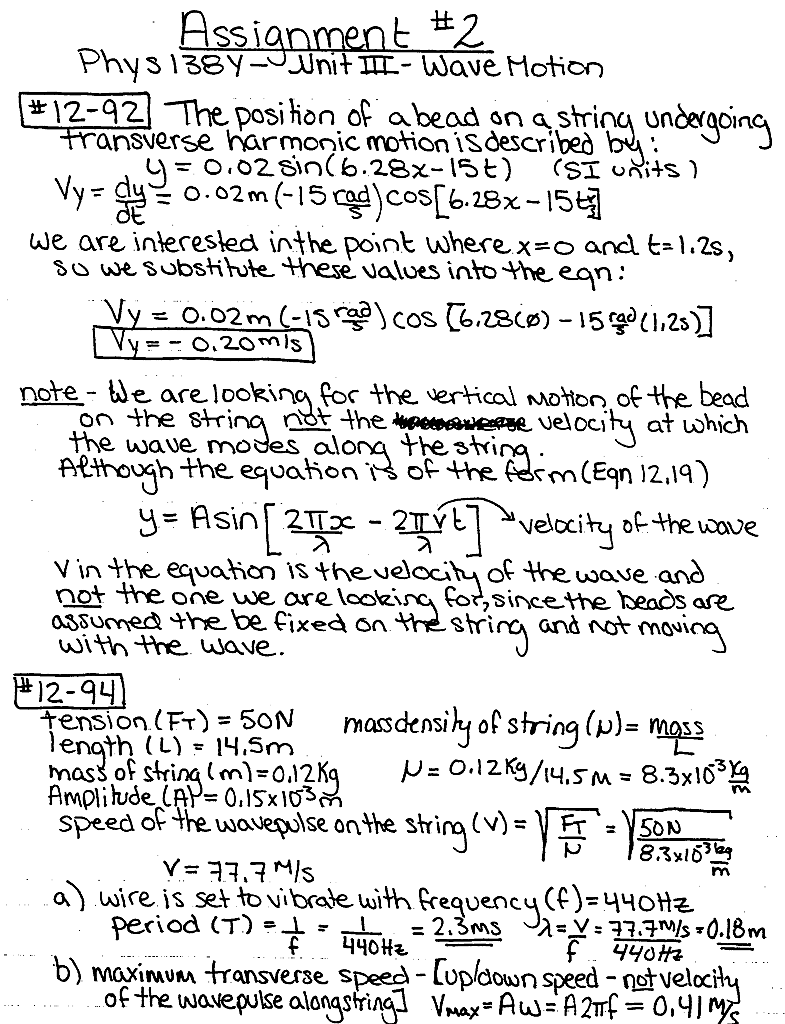 Assignment #2
Phys 138Y - Unit III - Wave Motion
#12-92 The position of a bead on a string undergoing
transverse harmonic motion is described by:
y = 0.02 sin(6.28x - 15t) (SI units)
Vy = dy/dt = 0.02m (-15 rad/s) cos[6.28x - 15t]
We are interested in the point where x=0 and t=1.2s,
so we substitute these values into the eqn:
Vy = 0.02m (-15 rad/s) cos [6.28(0) - 15 rad/s (1.2s)]
Vy = - 0.20 m/s
note - We are looking for the vertical motion of the bead
on the string not the velocity at which
the wave moves along the string.
Although the equation is of the form (Eqn 12.19)
y = A sin [2πx/λ - 2πvt/λ] → velocity of the wave
V in the equation is the velocity of the wave and
not the one we are looking for, since the beads are
assumed the be fixed on the string and not moving
with the wave.
#12-94
tension (FT) = 50N mass density of string (μ) = mass/L
length (L) = 14.5m
mass of string (m) = 0.12 Kg μ = 0.12 Kg/14.5 M = 8.3x10⁻³ Kg/m
Amplitude (A) = 0.15x10⁻³ m
speed of the wavepulse on the string (V) = √(FT/μ) = √(50N / 8.3x10⁻³ kg/m)
V = 77.7 M/s
a) wire is set to vibrate with frequency (f) = 440Hz
period (T) = 1/f = 1/440Hz = 2.3ms λ = V/f = 77.7 M/s / 440Hz = 0.18 m
b) maximum transverse speed - [up/down speed - not velocity
of the wavepulse along string] Vmax = Aω = A2πf = 0.41 M/s